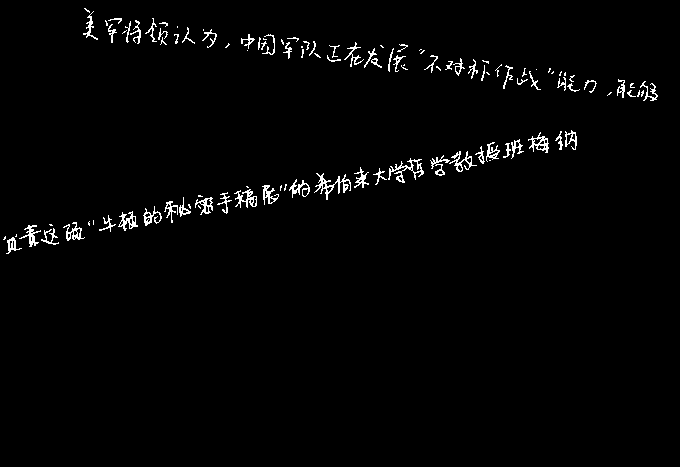 美军将领认为，中国军队正在发展“不对称作战”能力，能够
负责这项“牛顿的秘密手稿展”的希伯来大学哲学教授班梅纳